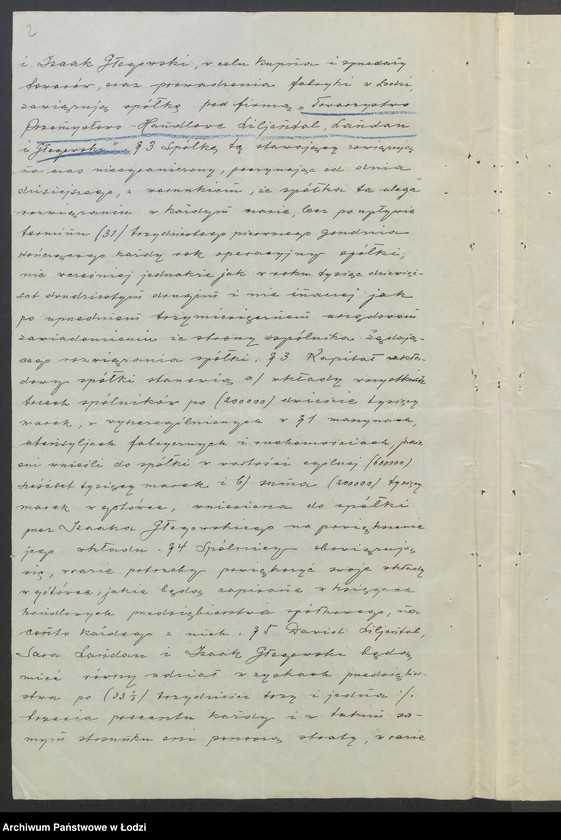 2
i Izaak Głogowski, w celu kupna i sprzedaży
towarów, oraz prowadzenia fabryki w Łodzi,
zawiązują spółkę pod firmą „Towarzystwo
Przemysłowo Handlowe Liljental, Landau
i Głogowski”. § 3 Spółkę tę stawający zawiązują
na czas nieograniczony, poczynając od dnia
dzisiejszego, z warunkiem, że spółka ta ulega
rozwiązaniu w każdym czasie, lecz po upływie
terminu (31) trzydziestego pierwszego grudnia
kończącego każdy rok operacyjny spółki,
nie wcześniej jednakże jak w roku tysiąc dziewięć-
set dwudziestym drugim i nie inaczej jak
po uprzedniem trzymiesięcznem urzędowem
zawiadomieniu ze strony wspólnika żądają-
cego rozwiązania spółki. § 3 Kapitał zakła-
dowy spółki stanowią a/ wkłady wszystkich
trzech spólników po (200000) dwieście tysięcy
marek, w wyszczególnionych w § 1 maszynach,
utensyljach fabrycznych i ruchomościach, jakie
oni wnieśli do spółki w wartości ogólnej (600000)
sześćset tysięcy marek i b) suma (200000) tysięcy
marek w gotówce, wniesiona do spółki
przez Izaaka Głogowskiego na powiększenie
jego wkładu. § 4 Spólnicy obowiązują
się, w razie potrzeby powiększyć swoje wkłady
w gotówce, jakie będą zapisane w księgach
handlowych przedsiębiorstwa spółkowego, na
conto każdego z nich. § 5 Dawid Liljental,
Sara Landau i Izaak Głogowski będą
mieć równy udział w zyskach przedsiębior-
stwa po (33 1/3) trzydzieści trzy i jedna
trzecia procentu każdy i w takim sa-
mym stosunku oni ponoszą straty, w razie
Archiwum Państwowe w Łodzi